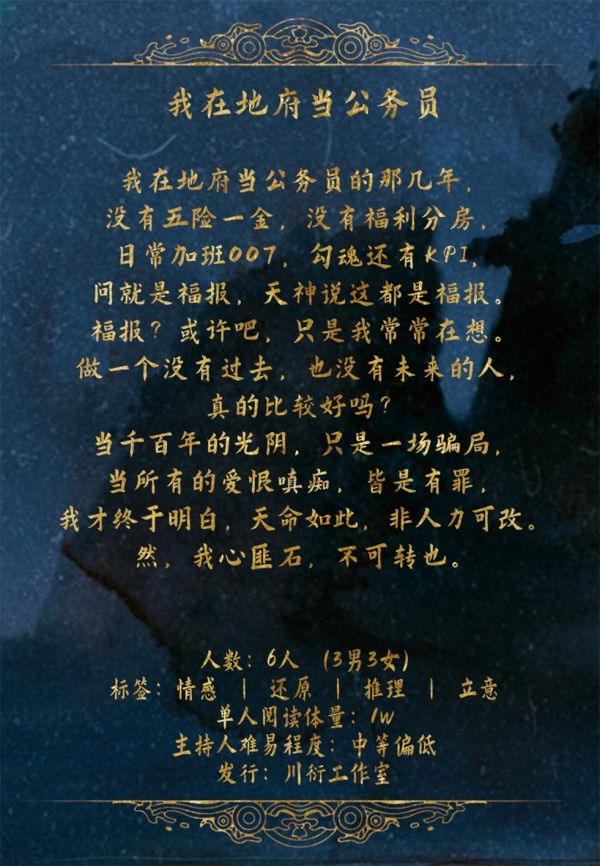 我在地府当公务员
我在地府当公务员的那几年，
没有五险一金，没有福利分房，
日常加班007，勾魂还有KPI，
问就是福报，天神说这都是福报。
福报？或许吧，只是我常常在想。
做一个没有过去，也没有未来的人，
真的比较好吗？
当千百年的光阴，只是一场骗局，
当所有的爱恨嗔痴，皆是有罪，
我才终于明白，天命如此，非人力可改。
然，我心匪石，不可转也。
人数：6人 (3男3女)
标签：情感 | 还原 | 推理 | 立意
单人阅读体量：1w
主持人难易程度：中等偏低
发行：川衍工作室